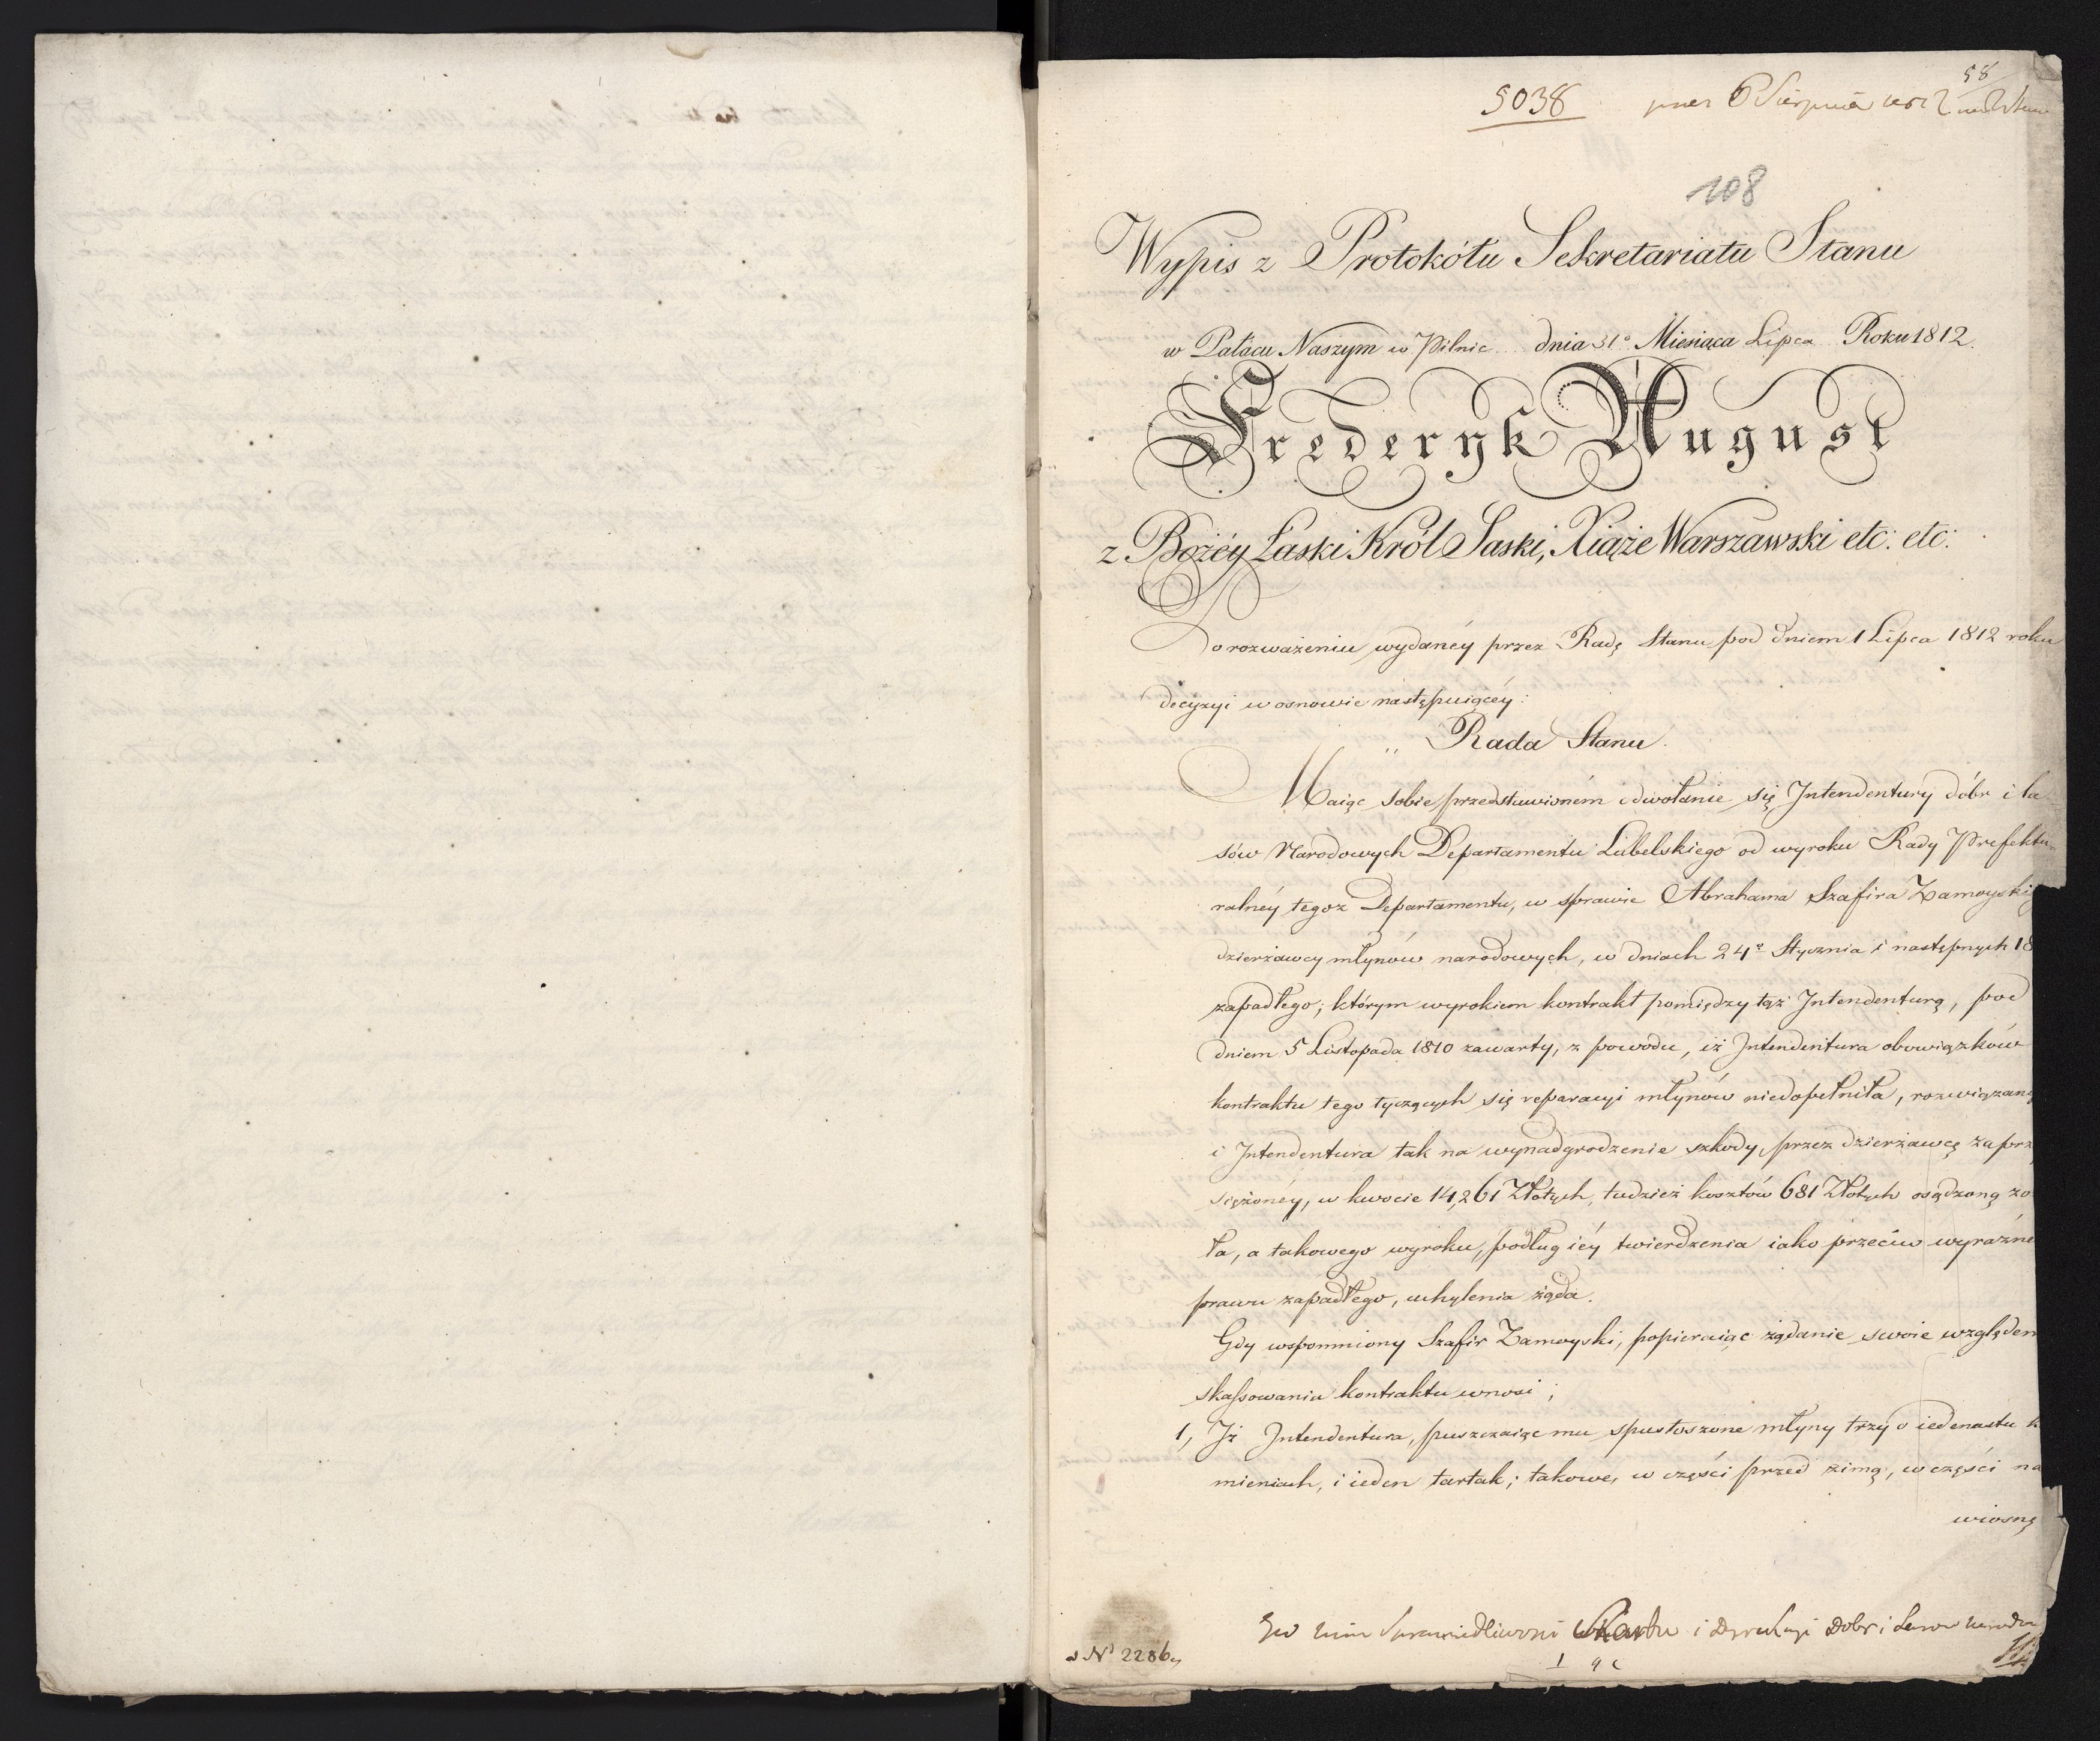 58
5038 6 Sierpnia 1812
108
Wypis z Protokółu Sekretariatu Stanu
w Pałacu Naszym w Pilnic dnia 31º Miesiąca Lipca Roku 1812.
Fryderyk August
z Bożéy Łaski Król Saski, Xiąże Warszawski etc: etc:
Po rozważeniu wydanéy przez Radę Stanu pod dniem 1 Lipca 1812 roku
decyzyi w osnowie następuiącéy:
„ Rada Stanu.
Maiąc sobie przedstawioném odwołanie się Intendentury dóbr i la-
sów Narodowych Departamentu Lubelskiego od wyroku Rady Prefektu-
ralnéy tegoż Departamentu, w sprawie Abrahama Szafira Zamoyski
dzierżawcy młynów narodowych, w dniach 24º Stycznia i następnych 18
zapadłego; którym wyrokiem kontrakt pomiędzy tąż Intendenturą, pod
dniem 5 Listopada 1810 zawarty, z powodu, iż Intendentura obowiązków
kontraktu tego tyczących się reparacyi młynów niedopełniła, rozwiązany
i Intendentura tak na wynadgrodzenie szkody, przez dzierżawcę zaprz
siężonéy, w kwocie 14,261 Złotych, tudzież kosztów 681 Złotych osądzoną zo
ła, a takowego wyroku, podług iéy twierdzenia iako przeciw wyraźne
prawu zapadłego, uchylenia żąda.
Gdy wspomniony Szafir Zamoyski, popieraiąc żądanie swoie względem
skassowania kontraktu wnosi;
1, Iż Intendentura, puszczaiąc mu spustoszone młyny trzy o iedenastu k
mieniach, i ieden tartak; takowe, w części przed zimą, w części na
wiosnę
Do Min Sprawiedliwości Skarbu i Dyrekcyi Dobr i Lasow Narodo
N 2286